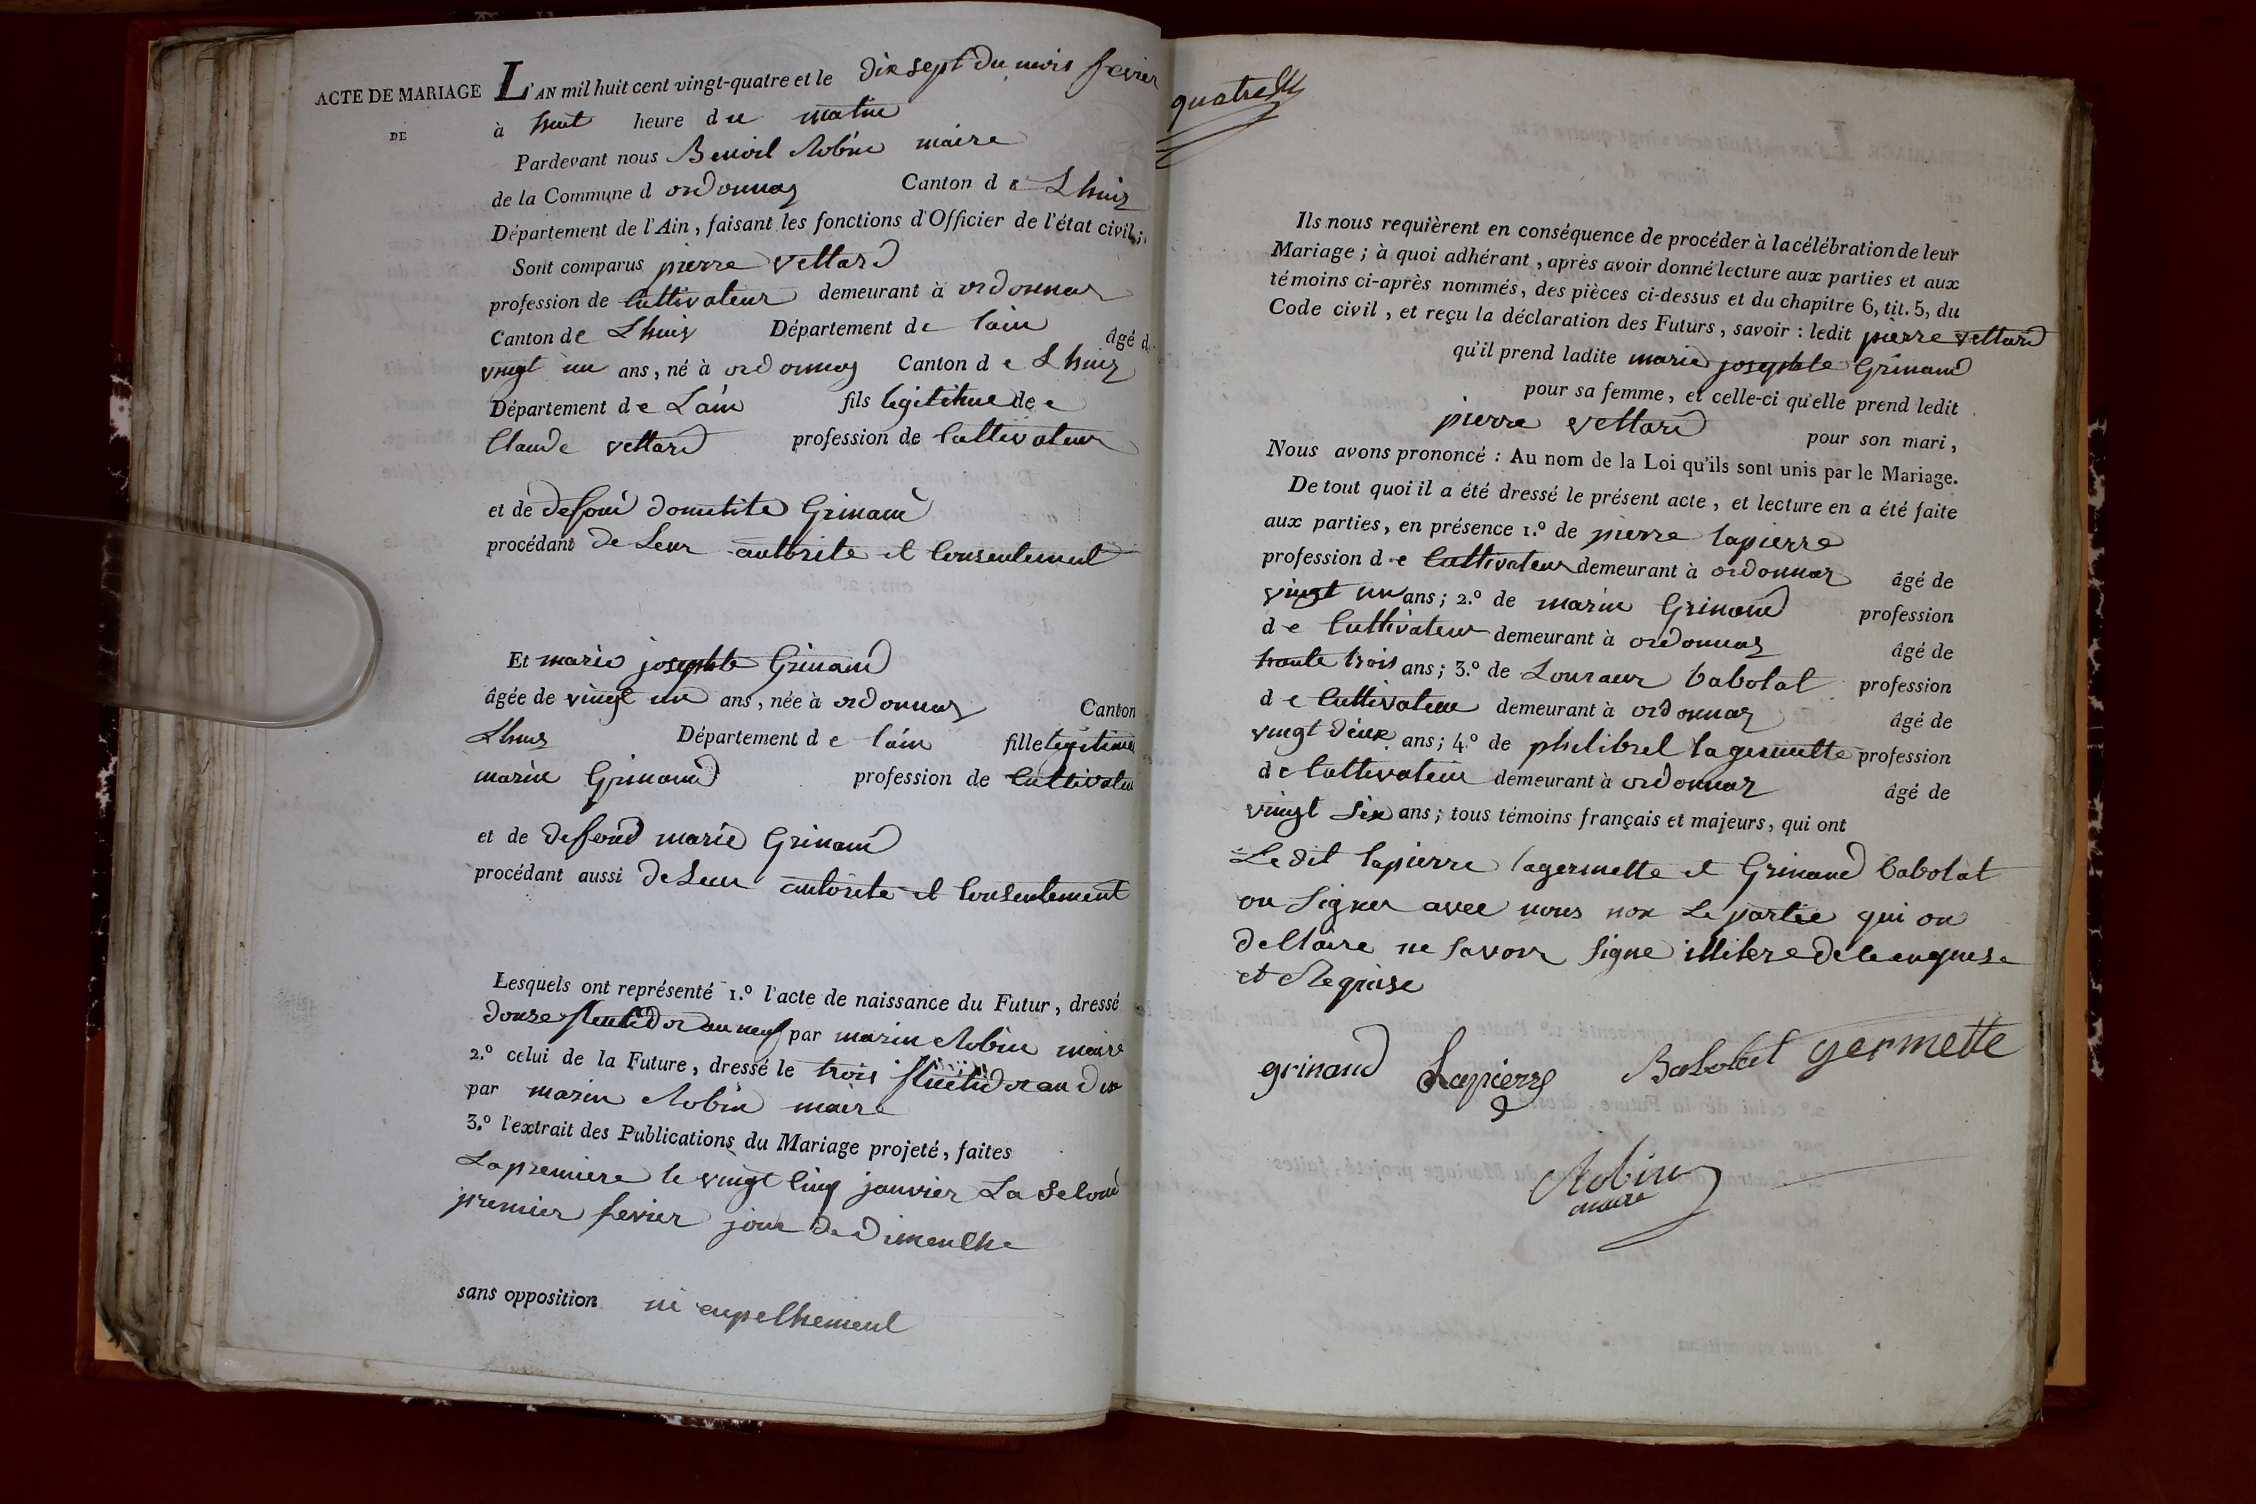 ACTE DE MARIAGE
DE
L'AN mil huit cent vingt-quatre et le dix sept du mois fevrier
à huit heure du matin
Pardevant nous Benoit Robin maire
de la Commune d ordonnaz Canton de Lhuiz
Département de l'Ain, faisant les fonctions d'Officier de l'état civil;
Sont comparus pierre vettard
profession de Cultivateur demeurant à ordonnaz
Canton de Lhuiz Département de lain âgé de
vingt un ans, né à ordonnaz Canton de Lhuiz
Département de Lain fils legitime de
Claude vettard profession de Cultivateur
et de defout domitite Grinand
procédant de Leur autorite et Consentement
Et marie josephte Grinand
âgée de vingt un ans, née à ordonnaz Canton
Lhuiz Département de lain fille legitime
marin Grinand profession de Cultivateu
et de defoud marie Grinand
procédant aussi de Leur autorite et Consentement
Lesquels ont représenté 1.º l'acte de naissance du Futur, dressé
douze fructidor an neuf par marin Robin maire
2.º celui de la Future, dressé le trois fructidor an dix
par marin Robin maire
3.º l'extrait des Publications du Mariage projeté, faites
La premiere le vingt Cinq janvier La Second
premier fevrier jour de Dimenche
sans opposition ni enpechement
quatre
Ils nous requièrent en conséquence de procéder à la célébration de leur
Mariage; à quoi adhérant, après avoir donné lecture aux parties et aux
témoins ci-après nommés, des pièces ci-dessus et du chapitre 6, tit. 5, du
Code civil, et reçu la déclaration des Futurs, savoir: ledit pierre vettard
qu'il prend ladite marie josephte Grinand
pour sa femme, et celle-ci qu'elle prend ledit
pierre vettard pour son mari,
Nous avons prononcé: Au nom de la Loi qu'ils sont unis par le Mariage.
De tout quoi il a été dressé le présent acte, et lecture en a été faite
aux parties, en présence 1.º de pierre lapierre
profession de Cultivateur demeurant à ordonnaz âgé de
vingt un ans; 2.º de marin Grinand profession
de Cultivateur demeurant à ordonnaz âgé de
trante trois ans; 3.º de babolat profession
de Cultivateur demeurant à ordonnaz âgé de
vingt deux ans; 4.º de philibret lagermette profession
de Cultivateur demeurant à ordonnaz âgé de
vingt six ans; tous témoins français et majeurs, qui ont
Le dit lapierre lagermette et Grinand babolat
on Signer avec nous non Le partie qui on
declaire ne savoir signe illitere de
et Requise
grinand Lapierre Babolat germette
Robin
maire